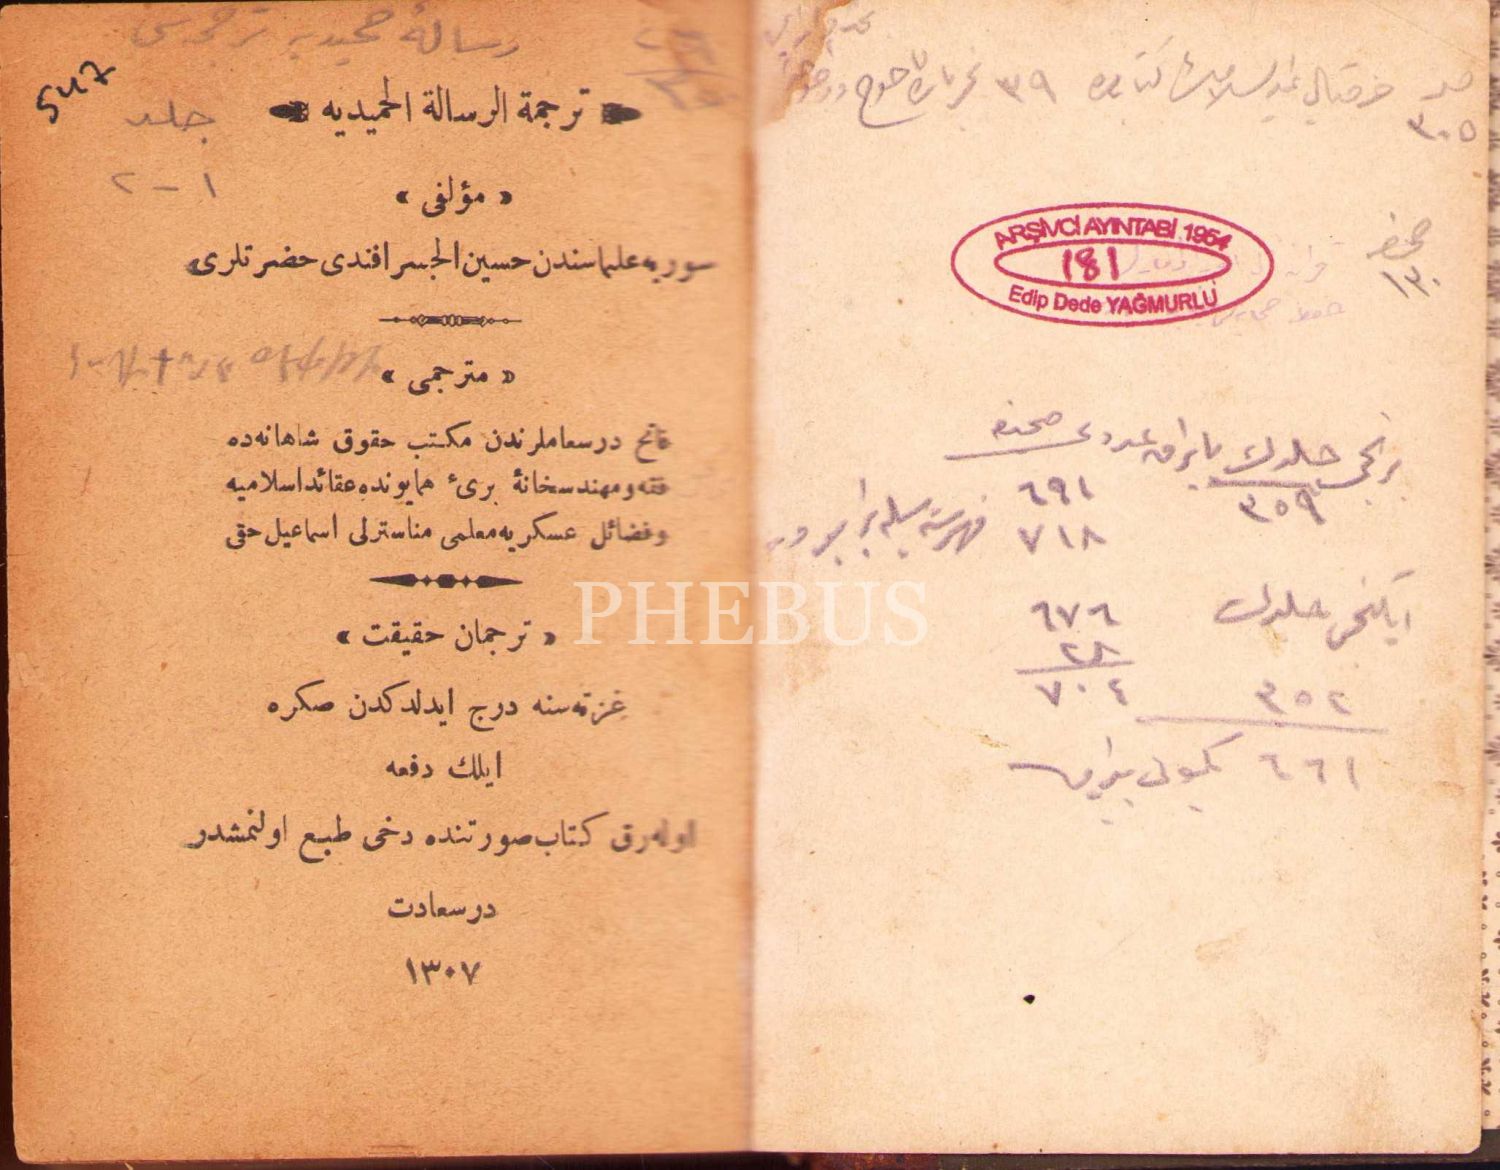 رسالهٔ حمیدیه ترجمه‌سی
547
ترجمة الرسالة الحمیدیه
جلد
١ - ٢
« مؤلفی »
سوریه علماسندن حسین الجسر افندی حضرتلری
« مترجمی »
فاتح درسعاملرندن مکتب حقوق شاهانه‌ده
فقه و مهندسخانهٔ بریٔ همایونده عقائد اسلامیه
وفضائل عسکریه معلمی مناسترلی اسماعیل حقی
« ترجمان حقیقت »
غزته‌سنه درج ایدلدکدن صکره
ایلك دفعه
اوله‌رق کتاب صورتنده دخی طبع اولنمشدر
درسعادت
١٣٠٧
٣٩
٣٠٥
ARŞİVCİ AYINTABİ 1954
181
Edip Dede YAĞMURLU
صحیفه
١٣٠
برنجی جلدك یاپراق عددی صحیفه
٣٥٩ ٦٩١
٧١٨ فهرستیله برابر
ایکنجی جلدك ٦٧٦
٢٨
٣٥٢ ٧٠٤
٦٦١
PHEBUS